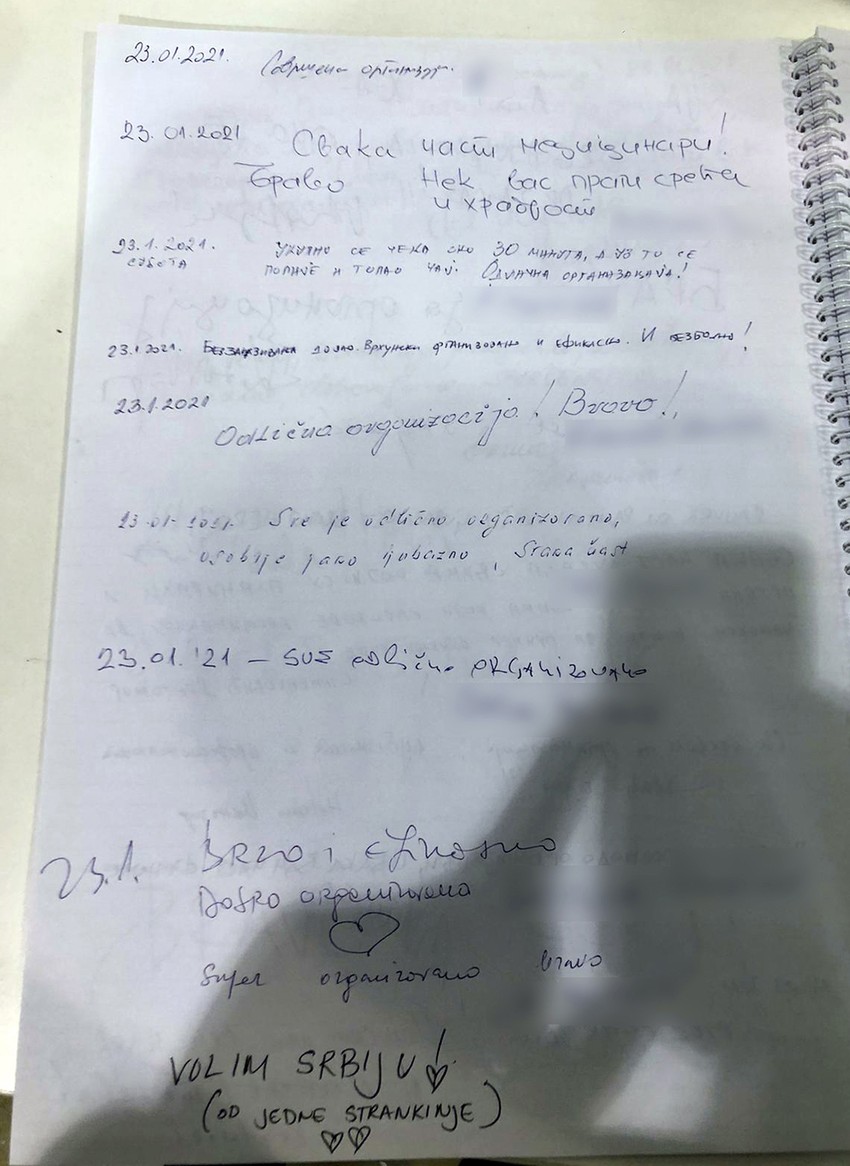 23.01.2021. Савршена организ.
23.01.2021 Свака част медицинари!
Браво Нек вас прати срећа
и храброст
23.1.2021. УКУПНО СЕ ЧЕКА ОКО 30 МИНУТА, А УЗ ТО СЕ
СУБОТА ПОПИЈЕ И ТОПАО ЧАЈ. ОДЛИЧНА ОРГАНИЗАЦИЈА!
23.1.2021. Врхунски организовано и ефикасно. И безболно!
23.1.2021 Odlična organizacija! Bravo!
23.01.2021. Sve je odlično organizovano,
osoblje jako ljubazno, Svaka čast
23.01.'21 – SVE odlično ORGANIZOVANO
23.1. BRZO i efikasno
Dobro organizovano
Super organizovano bravo
VOLIM SRBIJU!
(OD JEDNE STRANKINJE)